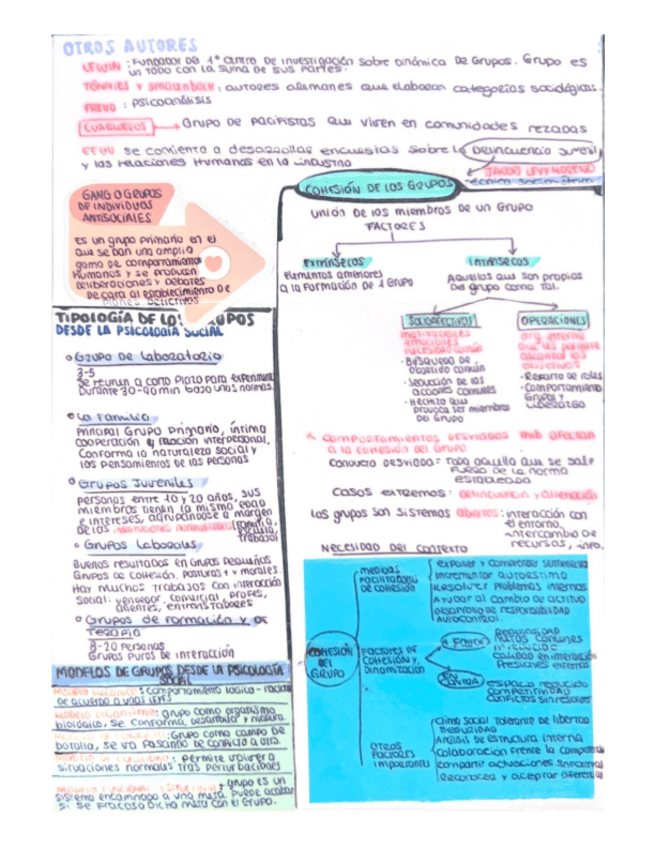 OTROS AUTORES
LEWIN: Fundador del 1º centro de investigación sobre dinámica de Grupos. Grupo es
un TODO con la suma de sus partes.
TÖNNIES y : autores alemanes que elaboran categorías sociológicas.
FREUD: psicoanálisis
CUÁQUEROS → Grupo de pacifistas que viven en comunidades rezadas
EEUU se comienza a desarrollar encuestas sobre la delincuencia juvenil
y las relaciones humanas en la industria
JACOB LEVY MORENO
GANG O GRUPOS
DE INDIVIDUOS
ANTISOCIALES
es un grupo primario en el
que se dan una amplia
gama de comportamientos
humanos y se producen
deliberaciones y debates
de cara al establecimiento de
planes delictivos
COHESIÓN DE LOS GRUPOS
unión de los miembros de un grupo
FACTORES
EXTRÍNSECOS
elementos anteriores
a la formación de 1 grupo
INTRÍNSECOS
Aquellos que son propios
del grupo como tal.
SOCIOAFECTIVOS
motivaciones
emociones
·Búsqueda de
objetivo común
·Seducción de las
acciones comunes
·Hechizo que
provoca ser miembros
del Grupo
OPERACIONES
org. interna
que les permite
alcanzar los
objetivos
-Reparto de roles
-Comportamiento
Grupal y
Liderazgo
TIPOLOGÍA DE LOS GRUPOS
DESDE LA PSICOLOGÍA SOCIAL
Grupo de Laboratorio
3-5
se reúnen a corto plazo para experimentar
Durante 30-40 min bajo unas normas.
La Familia
Principal Grupo primario, íntima
cooperación y relación interpersonal.
Conforma la naturaleza social y
los pensamientos de las personas
Grupos Juveniles
Personas entre 10 y 20 años, sus
miembros tienen la misma edad
e intereses, agrupándose a margen
de las instituciones normalizadas (familia,
escuela,
trabajo)
Grupos Laborales
Buenos resultados en Grupos pequeños
Grupos de cohesión, posturas + y morales.
Hay muchos trabajos con interacción
social: vendedor, comercial, profes,
agentes, entrevistadores
Grupos de formación y de
terapia
8-20 personas
Grupos puros de interacción
× Comportamientos desviados que afectan
a la cohesión del Grupo
Conducta desviada: Todo aquello que se sale
fuera de la norma
establecida
Casos extremos: delincuencia y alienación
Los grupos son sistemas abiertos: interacción con
el entorno,
intercambio de
recursos, info.
NECESIDAD DEL CONTEXTO
COHESIÓN
DEL
GRUPO
medidas
facilitadoras
de cohesión
exponer y comprender sentimientos
Incrementar autoestima
Resolver problemas internos
Ayudar al cambio de actitud
desarrollo de responsabilidad
Autocontrol.
FACTORES DE
COHESIÓN Y
DINAMIZACIÓN
A FAVOR
metas comunes
nº reducido
calidad en interacción
Presiones externas
EN CONTRA
espacio reducido
competitividad
conflictos sin resolver
OTROS
FACTORES
IMPORTANTES
clima social tolerante de libertad
seguridad
Análisis de estructura interna
Colaboración frente la competencia
compartir actuaciones
Reconocer y aceptar diferencias
MODELOS DE GRUPOS DESDE LA PSICOLOGÍA
SOCIAL
: comportamiento lógico-racional
de acuerdo a unas leyes
: grupo como organismo
biológico, se conforma, desarrolla y madura.
: Grupo como campo de
batalla, se va pasando de conflicto a otro.
: permite volver a
situaciones normales tras perturbaciones
: grupo es un
sistema encaminado a una meta. puede acabar
si se fracasa dicha meta con el Grupo.